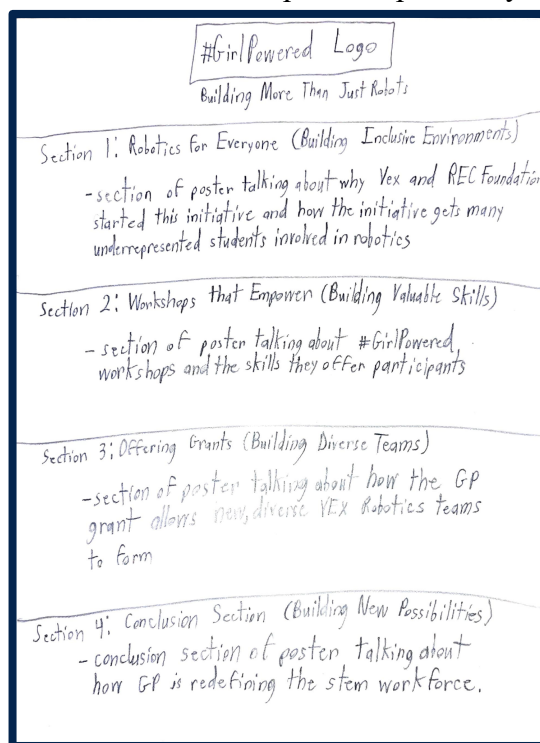 #GirlPowered Logo
Building More Than Just Robots
Section 1: Robotics for Everyone (Building Inclusive Environments)
-section of poster talking about why Vex and REC Foundation
started this initiative and how the initiative gets many
underrepresented students involved in robotics
Section 2: Workshops that Empower (Building Valuable Skills)
- section of poster talking about #GirlPowered
workshops and the skills they offer participants
Section 3: Offering Grants (Building Diverse Teams)
-section of poster talking about how the GP
grant allows new, diverse VEX Robotics teams
to form
Section 4: Conclusion Section (Building New Possibilities)
- conclusion section of poster talking about
how GP is redefining the stem workforce.